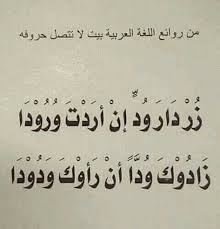 من روائع اللغة العربية بيت لا تتصل حروفه
زُرْ دَارَ وُدٍّ إنْ أَرَدْتَ وُرُودَا
زَادُوكَ وُدًّا أنْ رَأوْكَ وَدُودَا